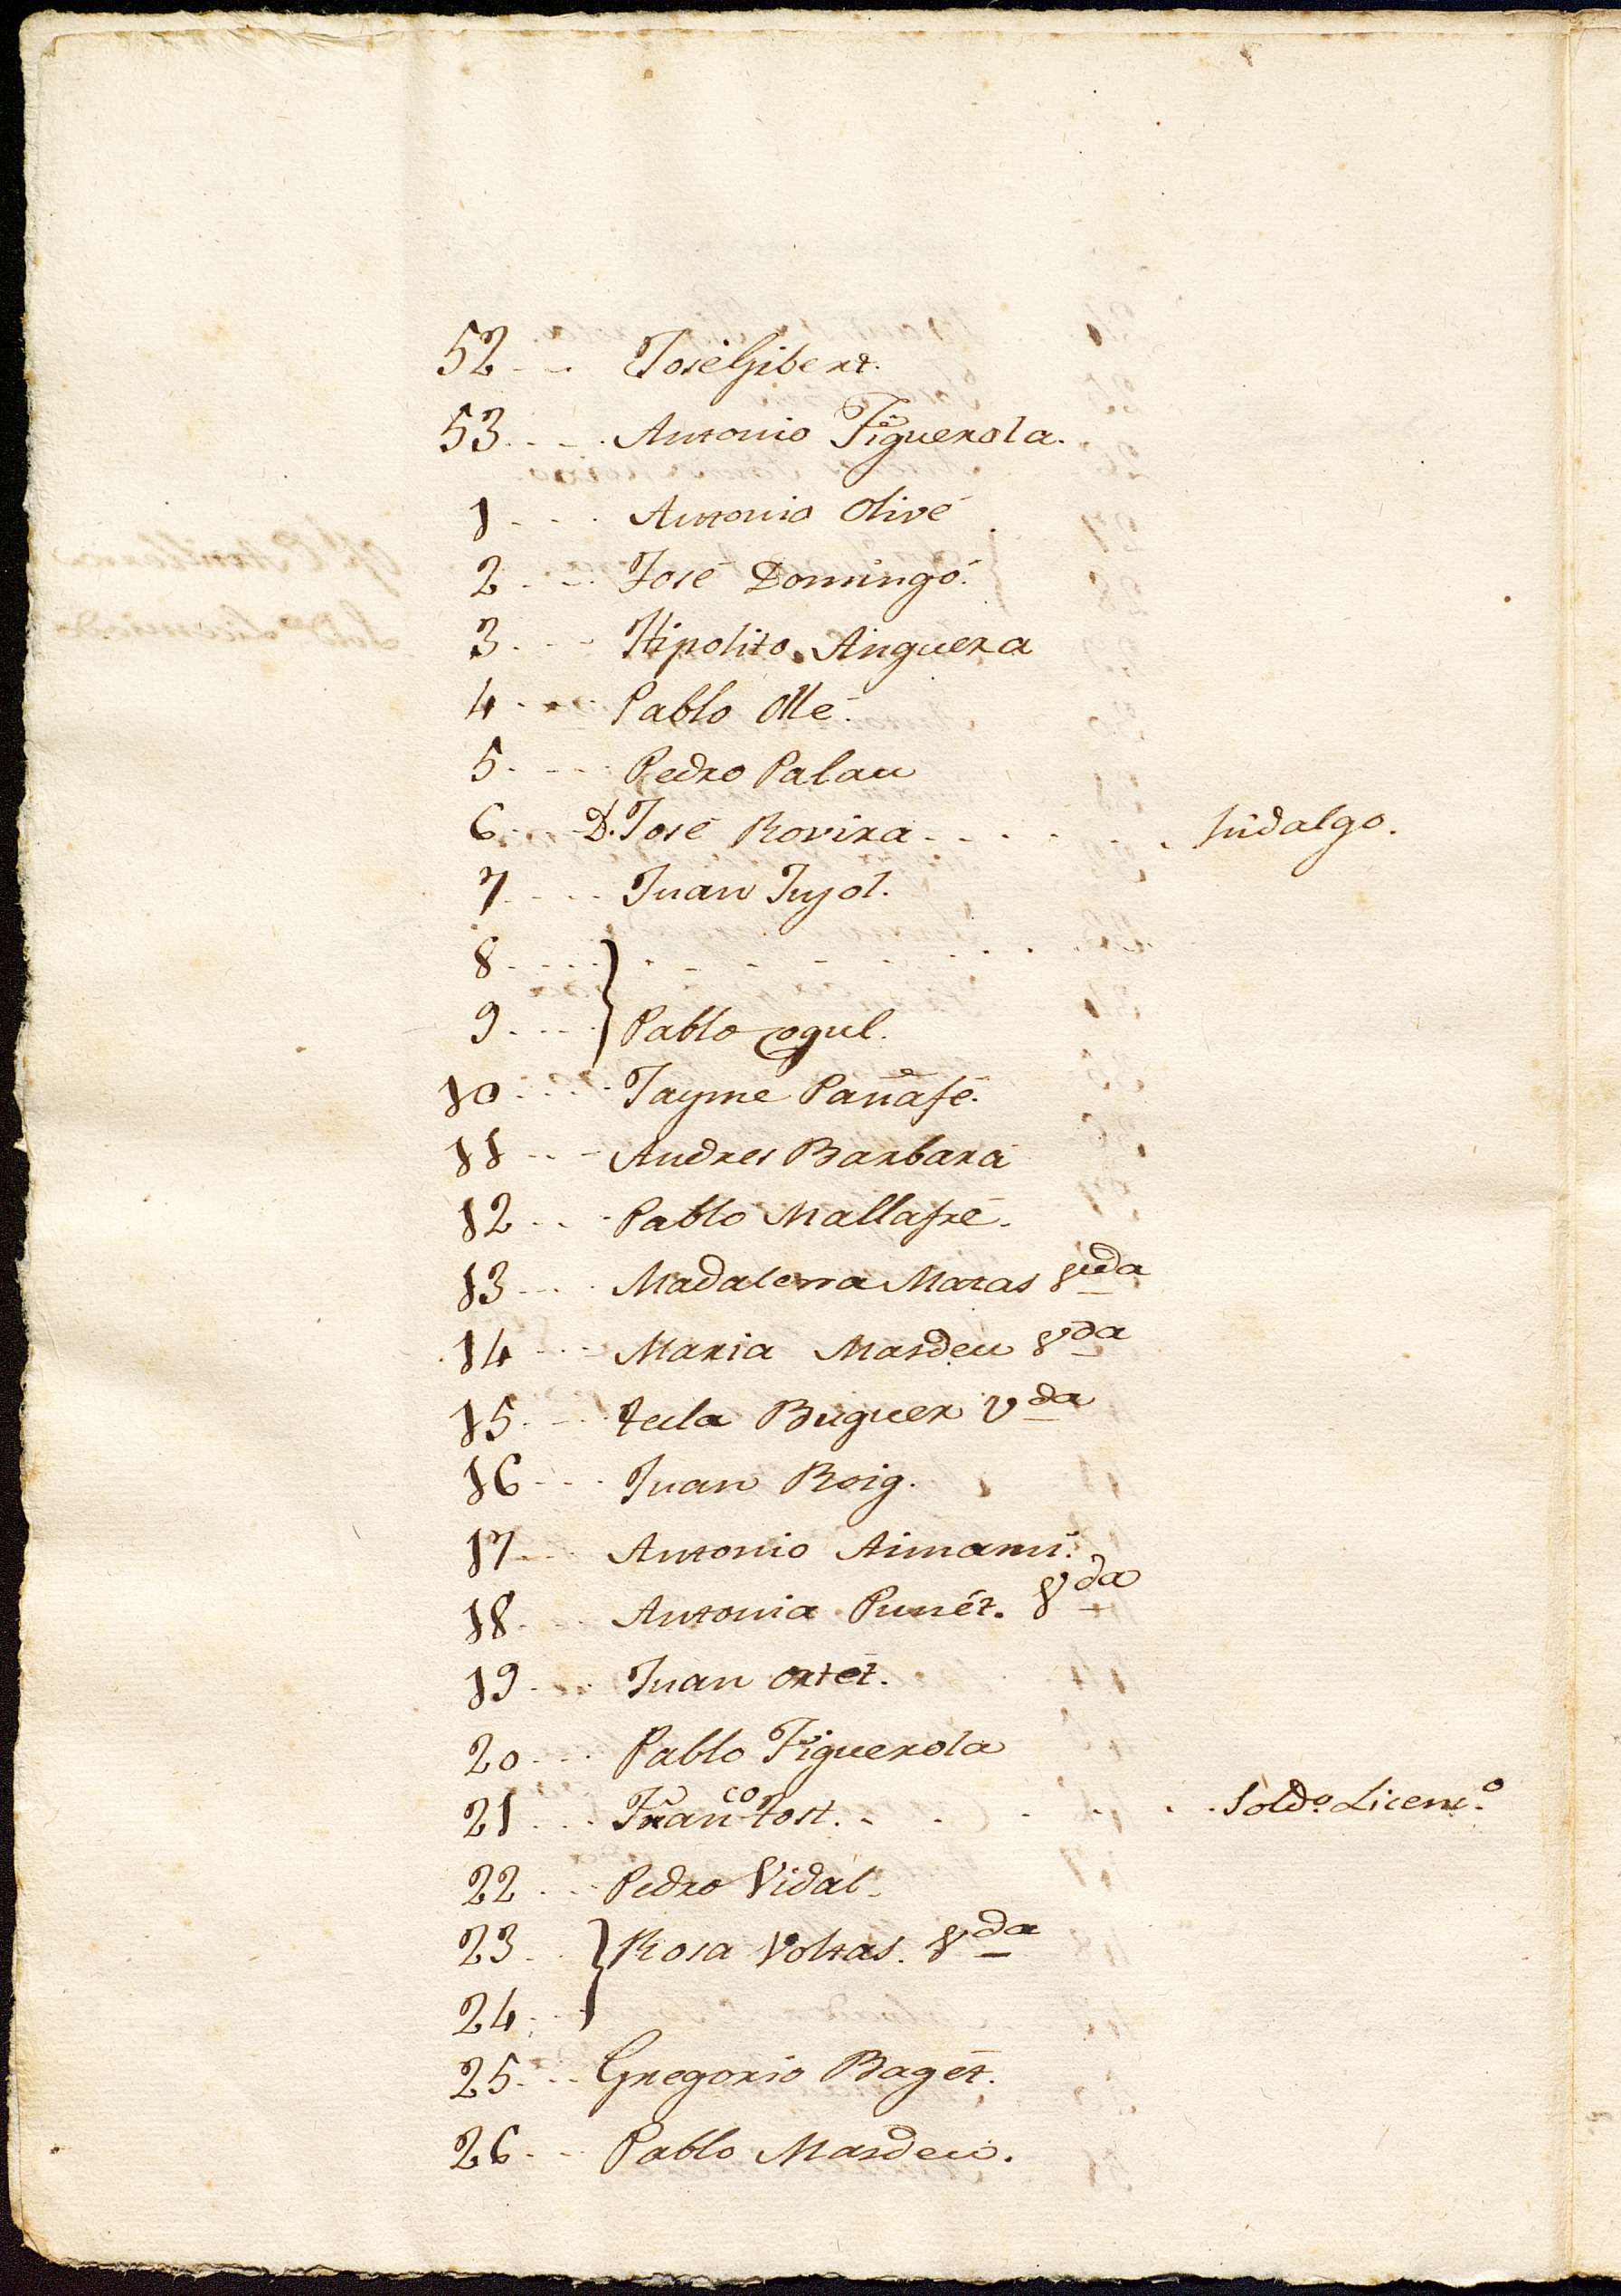 52 - - José Gibert.
53 - - - Antonio Figuerola.
1 - - - Antonio Olivé
2 - - - José Domingó.
3 - - - Hipolito Anguera
4 - - - Pablo Ollé.
5 - - - Pedro Palau
6 - - - D. José Rovira - - - - - hidalgo.
7 - - - Juan Jujol.
8 - - - - } - - - - - - -
9 - - - } Pablo ogul.
10 - - - Jayme Pañafé.
11 - - - Andres Barbará
12 - - - Pablo Mallafré.
13 - - - Madalena Matas vda
14 - - - Maria Masdeu vda
15 - - - Tecla Buguer vda
16 - - - Juan Roig.
17 - - - Antonio Aimami.
18 - - - Antonia Punét. vda
19 - - - Juan ortét.
20 - - - Pablo Figuerola
21 - - - Franco Tost. - - - - - Soldo. Licenc.o
22 - - - Pedro Vidal.
23 - - } Rosa Voltas. vda
24 - - }
25 - - - Gregorio Bagét.
26 - - - Pablo Masdeu.